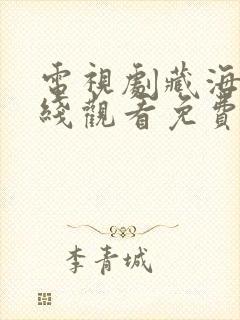 電視劇藏海
綫觀看免費
李青城